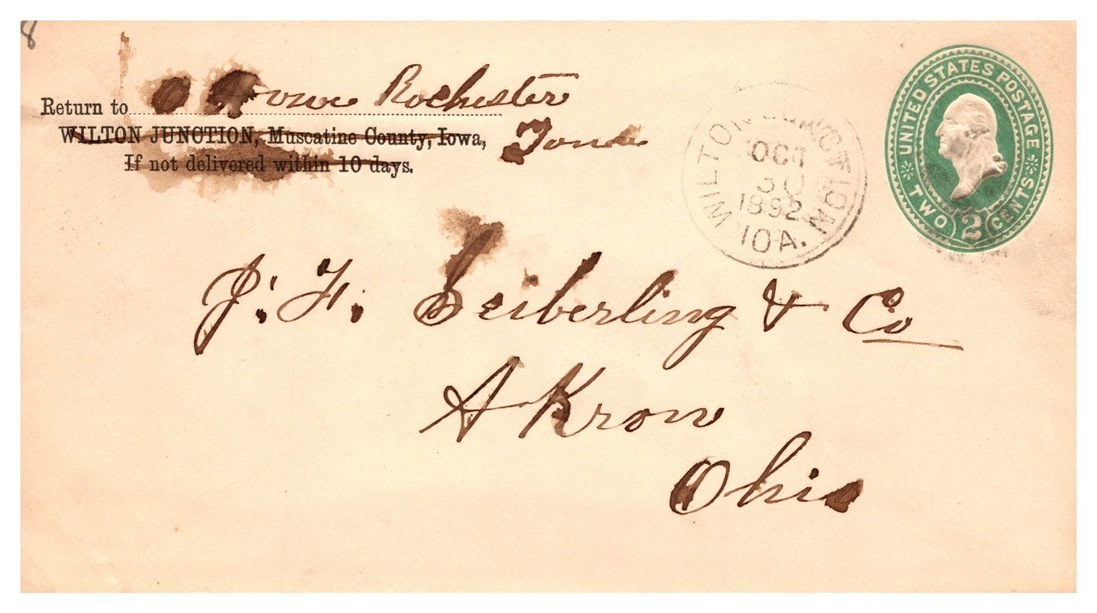 8
Return to Rochester
WILTON JUNCTION, Muscatine County, Iowa, Iowa
If not delivered within 10 days.
WILTON JUNCTION
OCT
30
1892
IOA.
UNITED STATES POSTAGE
TWO 2 CENTS
J. F. Seiberling & Co
Akron
Ohio